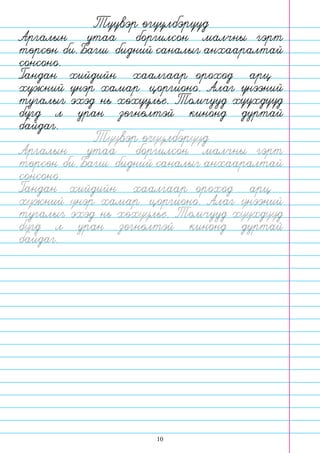 Түүвэр өгүүлбэрүүд
Аргалын утаа боргилсон малчны гэрт
төрсөн би. Багш бидний саналыг анхааралтай
сонсоно.
Гандан хийдийн хаалгаар ороход арц
хүжний үнэр хамар цоргионо. Алаг үнээний
тугалыг эхэд нь хөхүүлье. Томчууд хүүхдүүд
бүгд л уран зөгнөлтэй кинонд дуртай
байдаг.
Түүвэр өгүүлбэрүүд
Аргалын утаа боргилсон малчны гэрт
төрсөн би. Багш бидний саналыг анхааралтай
сонсоно.
Гандан хийдийн хаалгаар ороход арц
хүжний үнэр хамар цоргионо. Алаг үнээний
тугалыг эхэд нь хөхүүлье. Томчууд хүүхдүүд
бүгд л уран зөгнөлтэй кинонд дуртай
байдаг.
10